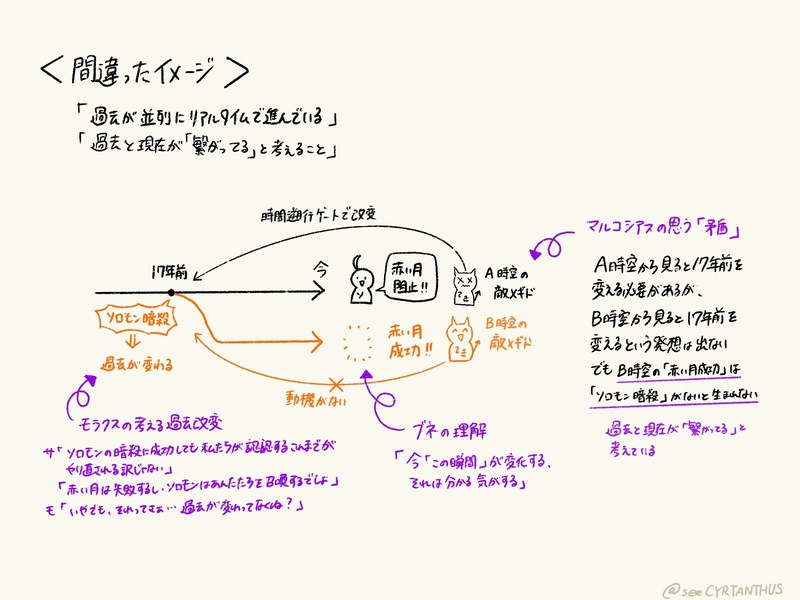 ＜間違ったイメージ＞
「過去が並列にリアルタイムで進んでいる」
「過去と現在が「繋がってる」と考えること」
時間遡行ゲートで改変
17年前
今
赤い月
阻止!!
ソ
てき
A時空の
敵メギド
ソロモン暗殺
⇓
過去が変わる
赤い月
成功!!
てき
B時空の
敵メギド
動機がない
マルコシアスの思う「矛盾」
A時空から見ると17年前を
変える必要があるが、
B時空から見ると17年前を
変えるという発想は出ない
でもB時空の「赤い月成功」は
「ソロモン暗殺」がないと生まれない
過去と現在が「繋がってる」と
考えている
モラクスの考える過去改変
サ「ソロモンの暗殺に成功しても私たちが認識するこれまでが
やり直される訳じゃない」
「赤い月は失敗するし、ソロモンはあんたたちを召喚するでしょ」
モ「いやでも、それってさぁ…過去が変わってなくね？」
ブネの理解
「今「この瞬間」が変化する、
それは分かる気がする」
@seeCYRTANTHUS